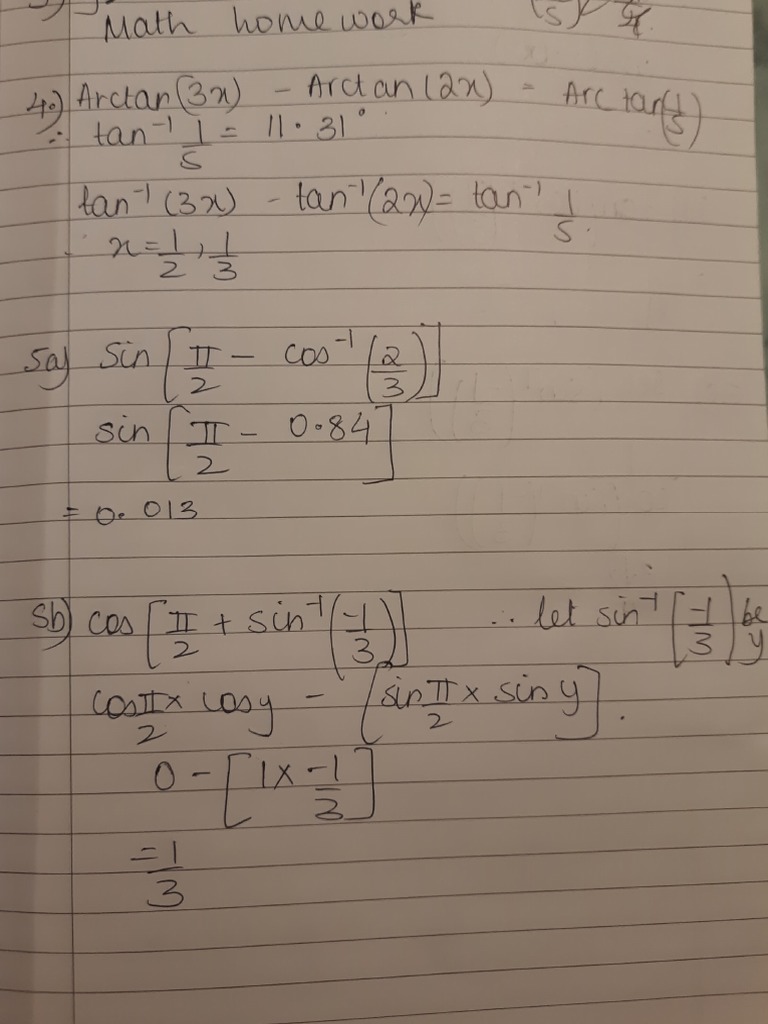 Math homework
4.) Arctan(3x) - Arctan(2x) = Arctan(1/5)
∴ tan⁻¹ 1/5 = 11.31°
tan⁻¹(3x) - tan⁻¹(2x) = tan⁻¹ 1/5.
∴ x = 1/2, 1/3
5a) Sin [π/2 - cos⁻¹(2/3)]
sin [π/2 - 0.84]
= 0.013
5b) cos [π/2 + sin⁻¹(-1/3)] ∴ let sin⁻¹(-1/3) be y
cos π/2 x cos y - [sin π/2 x sin y].
0 - [1 x -1/3]
= 1/3